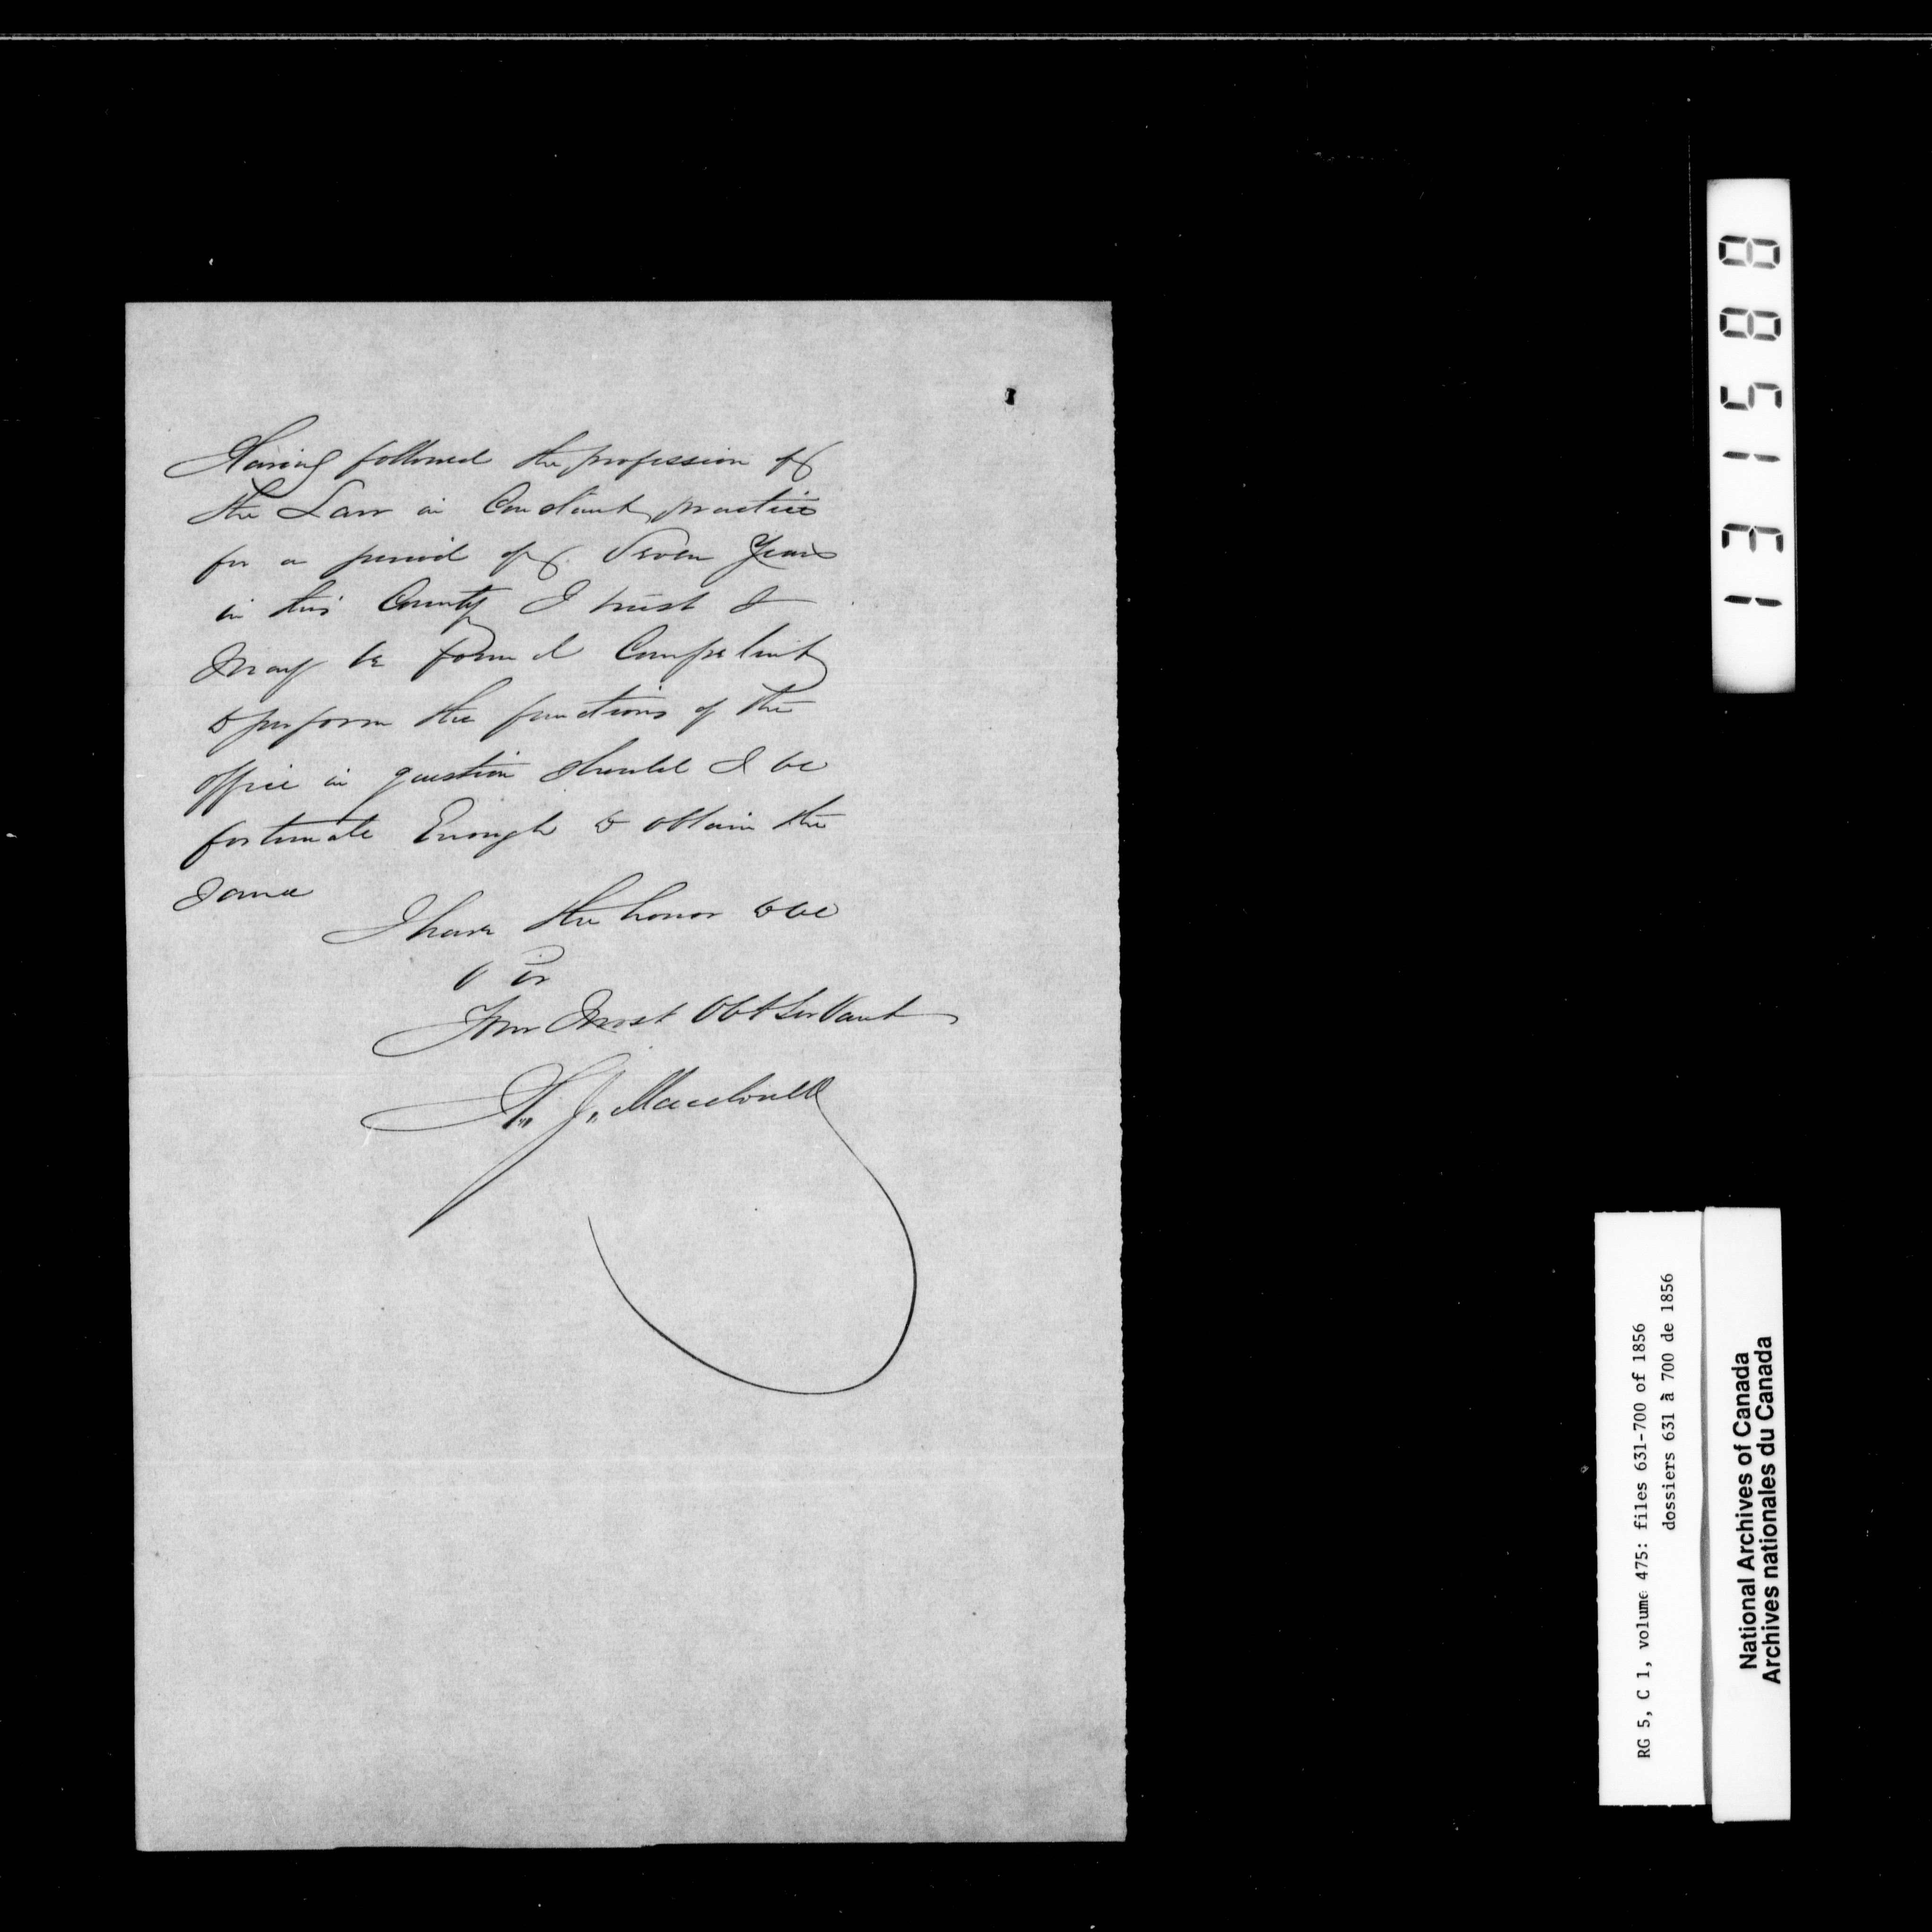 Having followed the profession of
the Law in Constant practice
for a period of Seven Years
in this County I trust I
may be found Competent
to perform the functions of the
office in question should I be
fortunate Enough to obtain the
Same
I have the honor to be
Sir
Your Most Obt Servant
A. J. Macdonell
131588
RG 5, C 1, volume 475: files 631-700 of 1856
dossiers 631 à 700 de 1856
National Archives of Canada
Archives nationales du Canada